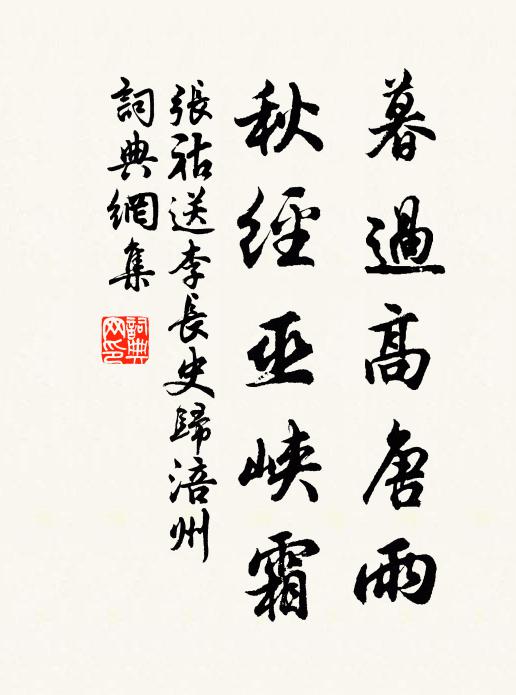 暮過高唐雨
秋經巫峽霜
張祜送李長史歸涪州
詞典網集
詞典网印